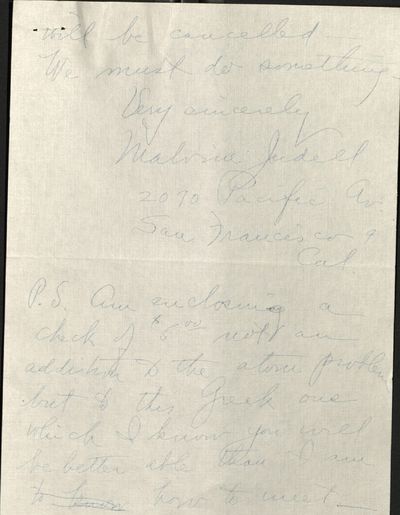 will be cancelled —
We must do something —
Very sincerely
Malvina Judell
2070 Pacific Av.
San Francisco 9
Cal
P.S. Am enclosing a
check of $5.00 not an
addition to the atom problem
but to this Greek one
which I know you will
be better able than I am
to know how to meet —